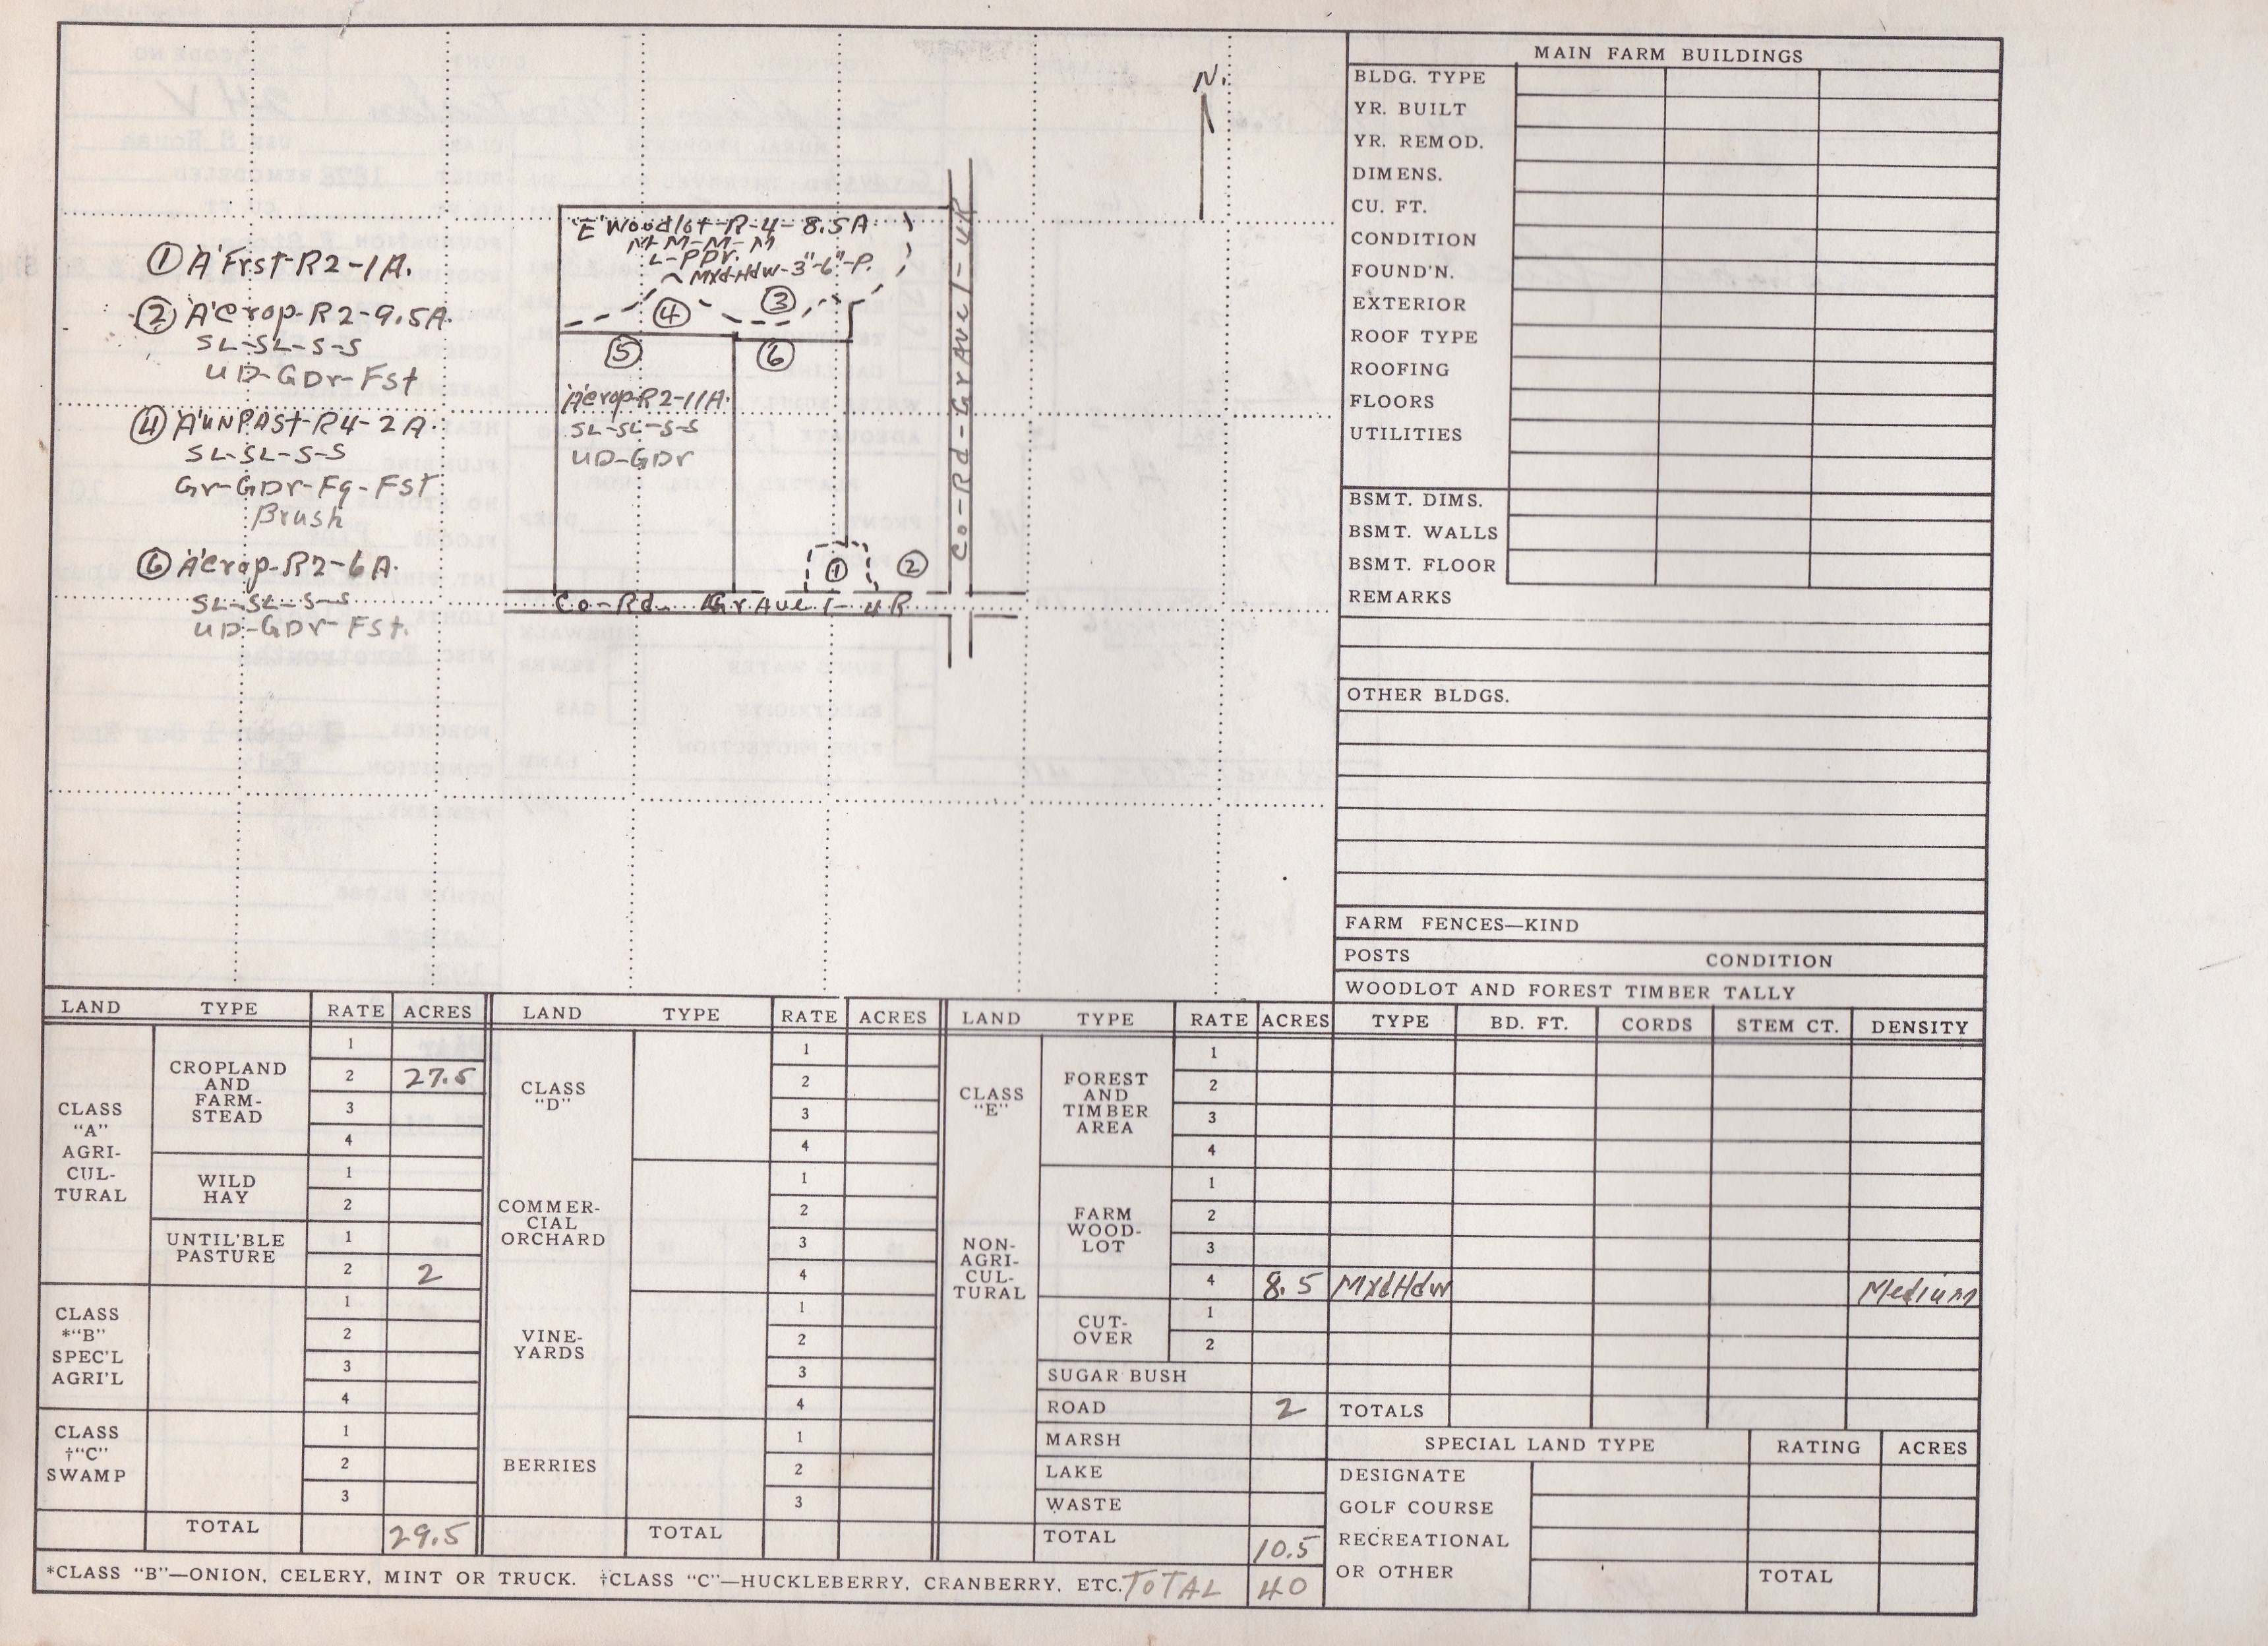 N.
"E" Woodlot-R-4-8.5A.
M-M-M-M
L-PPr.
Mxd-Hdw-3"-6"-P.
④ ③
⑤ ⑥
"A"crop-R2-11A.
SL-SL-S-S
UD-GDr
① ②
Co-Rd-Gravel-4R
Co-Rd-Gravel-4R
① "A"Frst-R2-1A.
② "A"Crop-R2-9.5A.
SL-SL-S-S
UD-GDr-Fst
④ "A"unPAst-R4-2A.
SL-SL-S-S
Gr-GDr-Fg-Fst
Brush
⑥ "A"Crop-R2-6A.
SL-SL-S-S
UD-GDr-Fst.
MAIN FARM BUILDINGS
BLDG. TYPE
YR. BUILT
YR. REMOD.
DIMENS.
CU. FT.
CONDITION
FOUND'N.
EXTERIOR
ROOF TYPE
ROOFING
FLOORS
UTILITIES
BSMT. DIMS.
BSMT. WALLS
BSMT. FLOOR
REMARKS
OTHER BLDGS.
FARM FENCES—KIND
POSTS CONDITION
WOODLOT AND FOREST TIMBER TALLY
LAND TYPE RATE ACRES
CLASS
"A"
AGRI-
CUL-
TURAL
CROPLAND
AND
FARM-
STEAD
1
2 27.5
3
4
WILD
HAY
1
2
UNTIL'BLE
PASTURE
1
2 2
CLASS
*"B"
SPEC'L
AGRI'L
1
2
3
4
CLASS
†"C"
SWAMP
1
2
3
TOTAL 29.5
LAND TYPE RATE ACRES
CLASS
"D"
1
2
3
4
COMMER-
CIAL
ORCHARD
1
2
3
4
VINE-
YARDS
1
2
3
4
BERRIES
1
2
3
TOTAL
LAND TYPE RATE ACRES TYPE BD. FT. CORDS STEM CT. DENSITY
CLASS
"E"
NON-
AGRI-
CUL-
TURAL
FOREST
AND
TIMBER
AREA
1
2
3
4
FARM
WOOD-
LOT
1
2
3
4 8.5 MxdHdw Medium
CUT-
OVER
1
2
SUGAR BUSH
ROAD 2 TOTALS
MARSH
LAKE
WASTE
TOTAL 10.5
SPECIAL LAND TYPE RATING ACRES
DESIGNATE
GOLF COURSE
RECREATIONAL
OR OTHER
TOTAL
*CLASS "B"—ONION, CELERY, MINT OR TRUCK. †CLASS "C"—HUCKLEBERRY, CRANBERRY, ETC. TOTAL 40